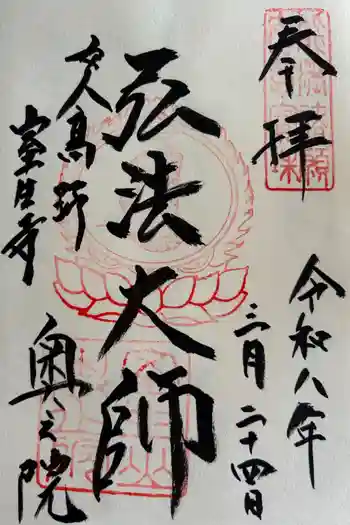 奉拝
令和八年
三月二十四日
弘法大師
女人高野
室生寺
奥之院